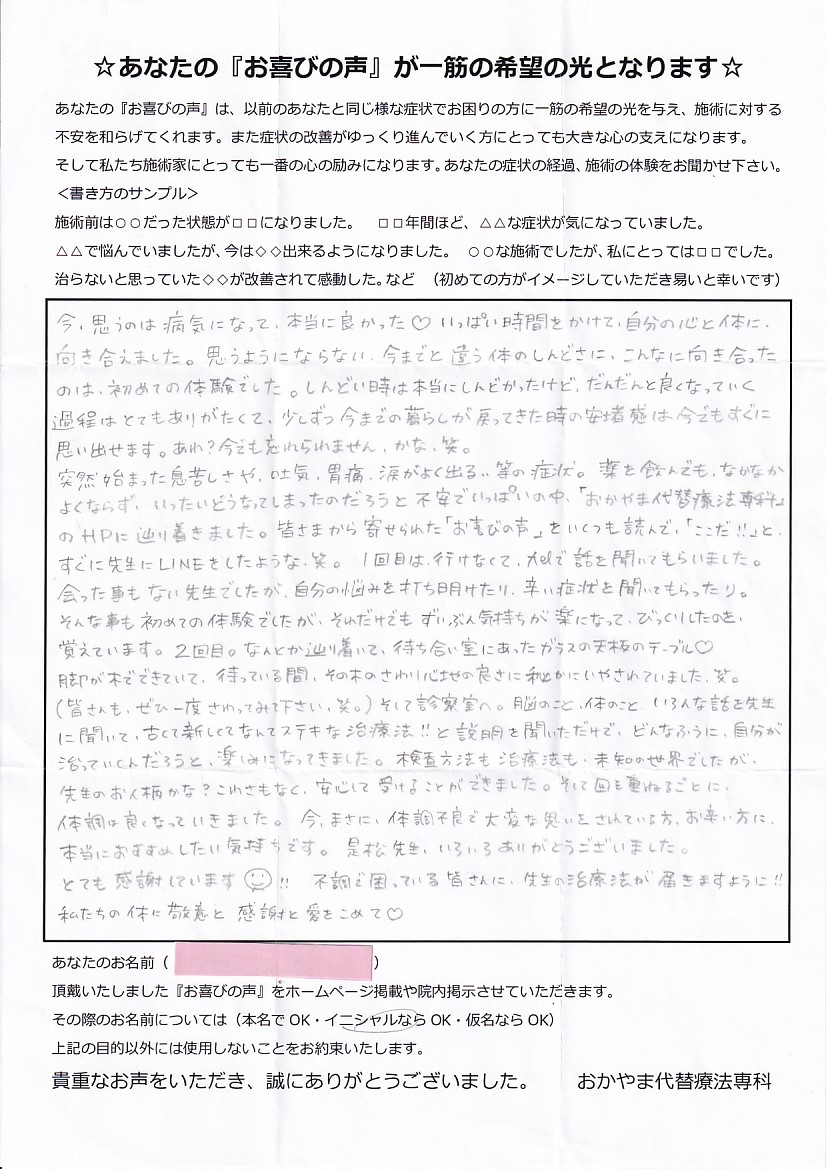 ☆あなたの『お喜びの声』が一筋の希望の光となります☆
あなたの『お喜びの声』は、以前のあなたと同じ様な症状でお困りの方に一筋の希望の光を与え、施術に対する
不安を和らげてくれます。また症状の改善がゆっくり進んでいく方にとっても大きな心の支えになります。
そして私たち施術家にとっても一番の心の励みになります。あなたの症状の経過、施術の体験をお聞かせ下さい。
＜書き方のサンプル＞
施術前は○○だった状態が□□になりました。　□□年間ほど、△△な症状が気になっていました。
△△で悩んでいましたが、今は◇◇出来るようになりました。　○○な施術でしたが、私にとっては□□でした。
治らないと思っていた◇◇が改善されて感動した。など　（初めての方がイメージしていただき易いと幸いです）
今、思うのは病気になって、本当に良かった♡ いっぱい時間をかけて、自分の心と体に、
向き合えました。思うようにならない、今までと違う体のしんどさに、こんなに向き合った
のは、初めての体験でした。しんどい時は本当にしんどかったけど、だんだんと良くなっていく
過程はとてもありがたくて、少しずつ今までの暮らしが戻ってきた時の安堵感は今でもすぐに
思い出せます。あれ？今でも忘れられません、かな、笑。
突然始まった息苦しさや、吐気、胃痛、涙がよく出る‥等の症状。薬を飲んでも、なかなか
よくならず、いったいどうなってしまったのだろうと不安でいっぱいの中、「おかやま代替療法専科」
のHPに辿り着きました。皆さまから寄せられた「お喜びの声」をいくつも読んで、「ここだ!!」と、
すぐに先生にLINEをしたような、笑。　1回目は、行けなくて、telで話を聞いてもらいました。
会った事もない先生でしたが、自分の悩みを打ち明けたり、辛い症状を聞いてもらったり。
そんな事も初めての体験でしたが、それだけでもずいぶん気持ちが楽になって、びっくりしたのを、
覚えています。2回目。なんとか辿り着いて、待ち合い室にあったガラスの天板のテーブル♡
脚が木でできていて、待っている間、その木のさわり心地の良さに秘かにいやされていました、笑。
（皆さんも、ぜひ一度さわってみて下さい、笑。）そして診察室へ。脳のこと、体のこと、いろんな話を先生
に聞いて、古くて新しくてなんてステキな治療法!!と説明を聞いただけで、どんなふうに、自分が
治っていくんだろうと、楽しみになってきました。検査方法も治療法も、未知の世界でしたが、
先生のお人柄かな？これさもなく、安心して受けることができました。そして回を重ねるごとに、
体調は良くなっていきました。今、まさに、体調不良で大変な思いをされている方、お辛い方に、
本当におすすめしたい気持ちです。是松先生、いろいろありがとうございました。
とても感謝しています☺!!　不調で困っている皆さんに、先生の治療法が届きますように!!
私たちの体に敬意と感謝と愛をこめて♡
あなたのお名前（　　　　　）
頂戴いたしました『お喜びの声』をホームページ掲載や院内掲示させていただきます。
その際のお名前については（本名でOK・イニシャルならOK・仮名ならOK）
上記の目的以外には使用しないことをお約束いたします。
貴重なお声をいただき、誠にありがとうございました。　　おかやま代替療法専科